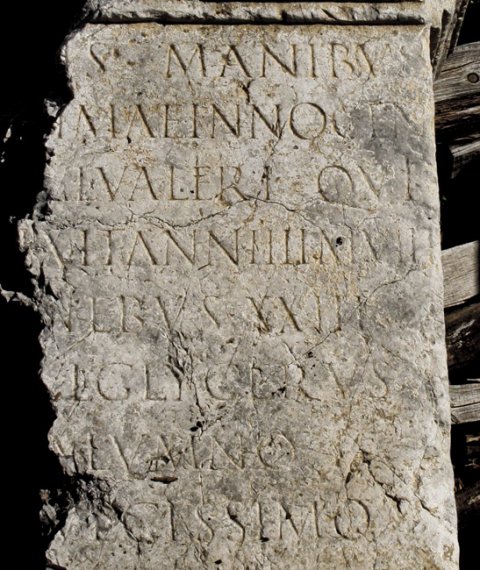 S MANIBV
MAE INNOCEN
VALERI QVI
VIXIT ANN IIII M VII
EBVS XXIII
GLYCERVS
ALVMNO
CISSIMO